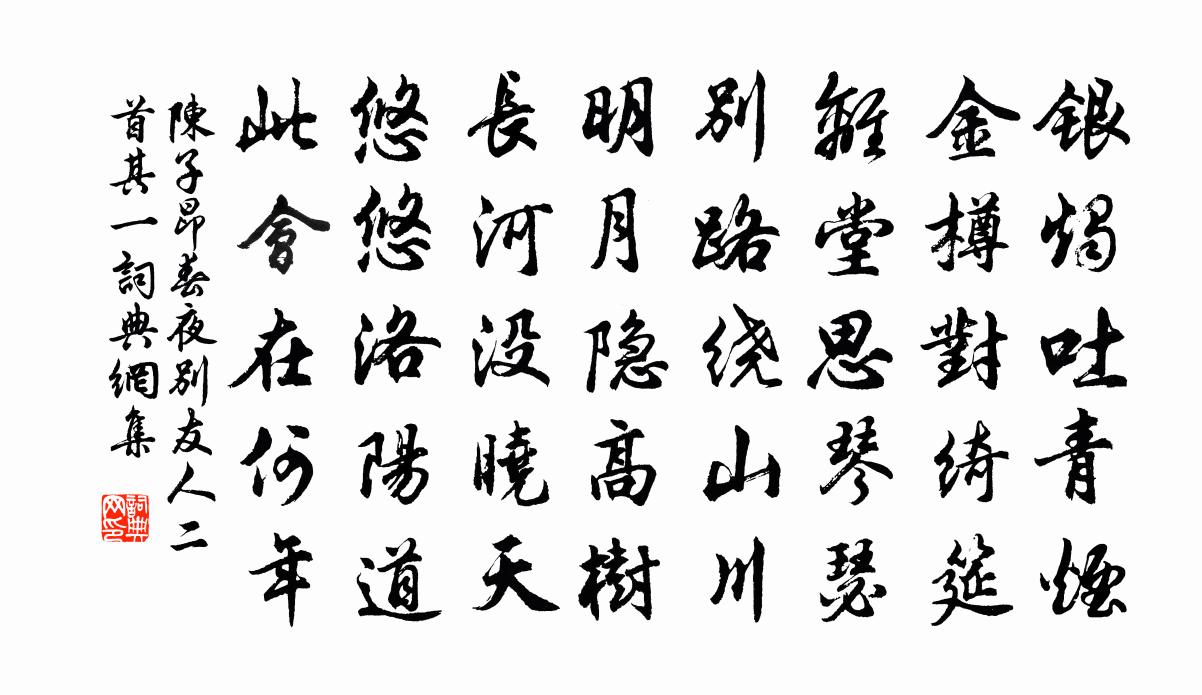 銀燭吐青煙
金樽對綺筵
離堂思琴瑟
別路绕山川
明月隐高樹
長河没曉天
悠悠洛陽道
此會在何年
陳子昂春夜別友人二
首其一詞典網集
詞典
网印